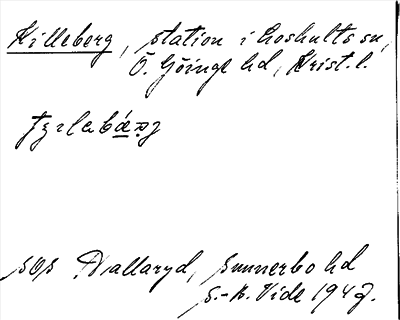 Killeberg, station i Loshults sn,
Ö. Göinge hd, Krist. l.
sOs Hallaryd, Sunnerbo hd
S.-B. Vide 1947.